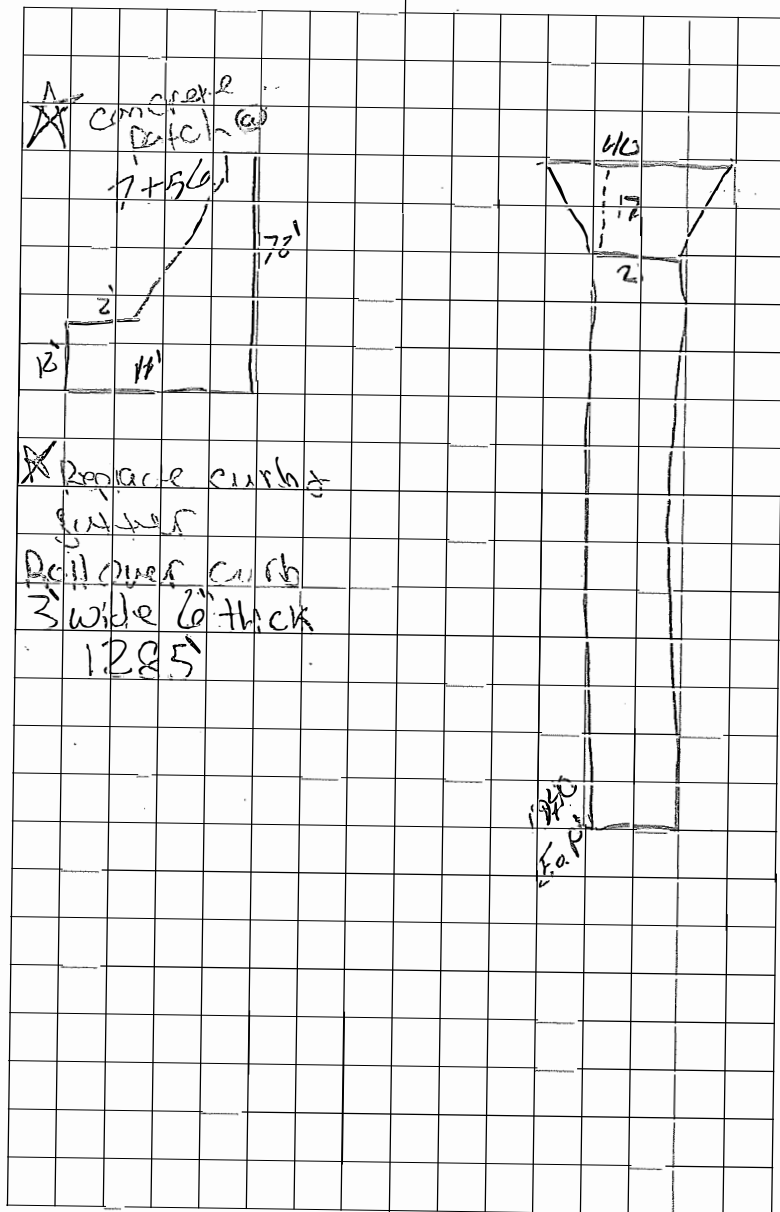 Concrete
Patch @
7+56
2'
11'
40
12
2
Replace curb &
gutter
Roll over curb
3' wide 6" thick
1285'
E.O.P